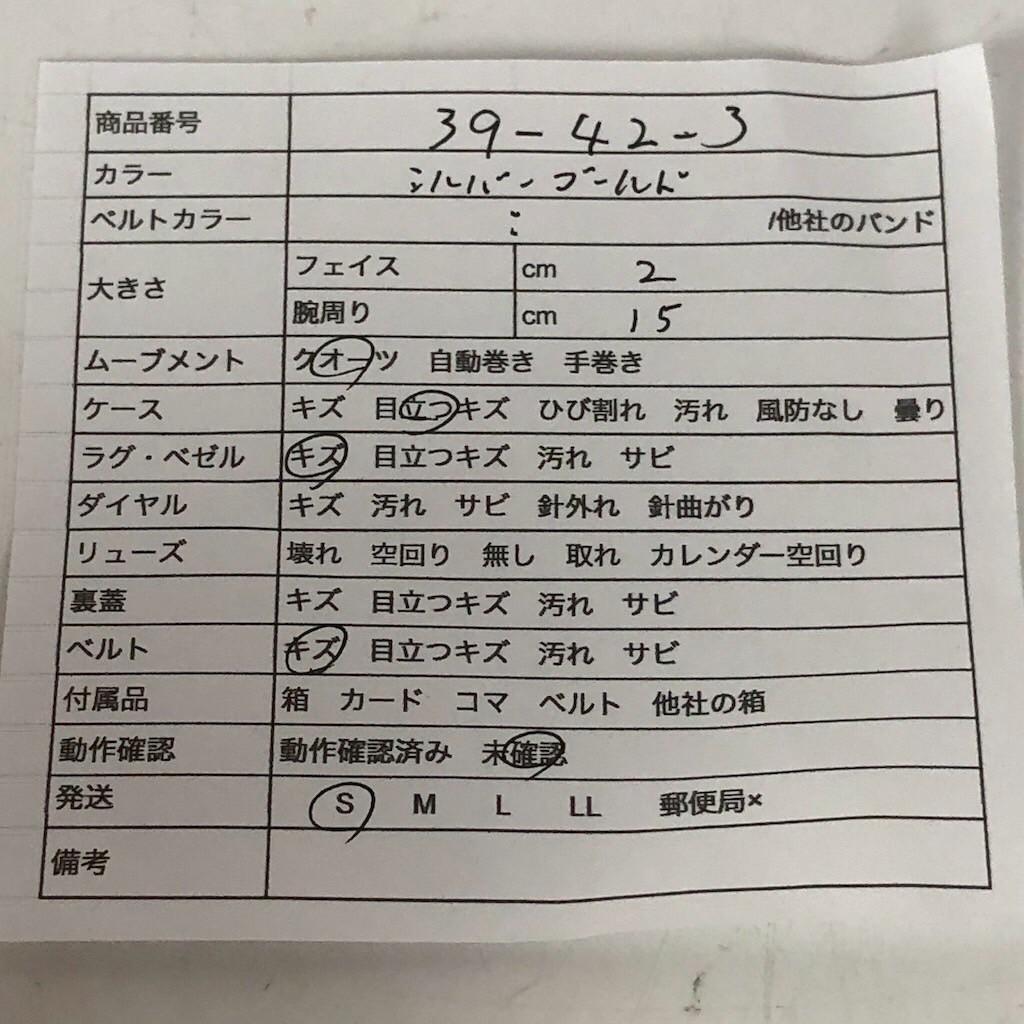 商品番号 39-42-3
カラー シルバー ゴールド
ベルトカラー : /他社のバンド
大きさ フェイス cm 2
腕周り cm 15
ムーブメント クオーツ 自動巻き 手巻き
ケース キズ 目立つキズ ひび割れ 汚れ 風防なし 曇り
ラグ・ベゼル キズ 目立つキズ 汚れ サビ
ダイヤル キズ 汚れ サビ 針外れ 針曲がり
リューズ 壊れ 空回り 無し 取れ カレンダー空回り
裏蓋 キズ 目立つキズ 汚れ サビ
ベルト キズ 目立つキズ 汚れ サビ
付属品 箱 カード コマ ベルト 他社の箱
動作確認 動作確認済み 未確認
発送 S M L LL 郵便局×
備考